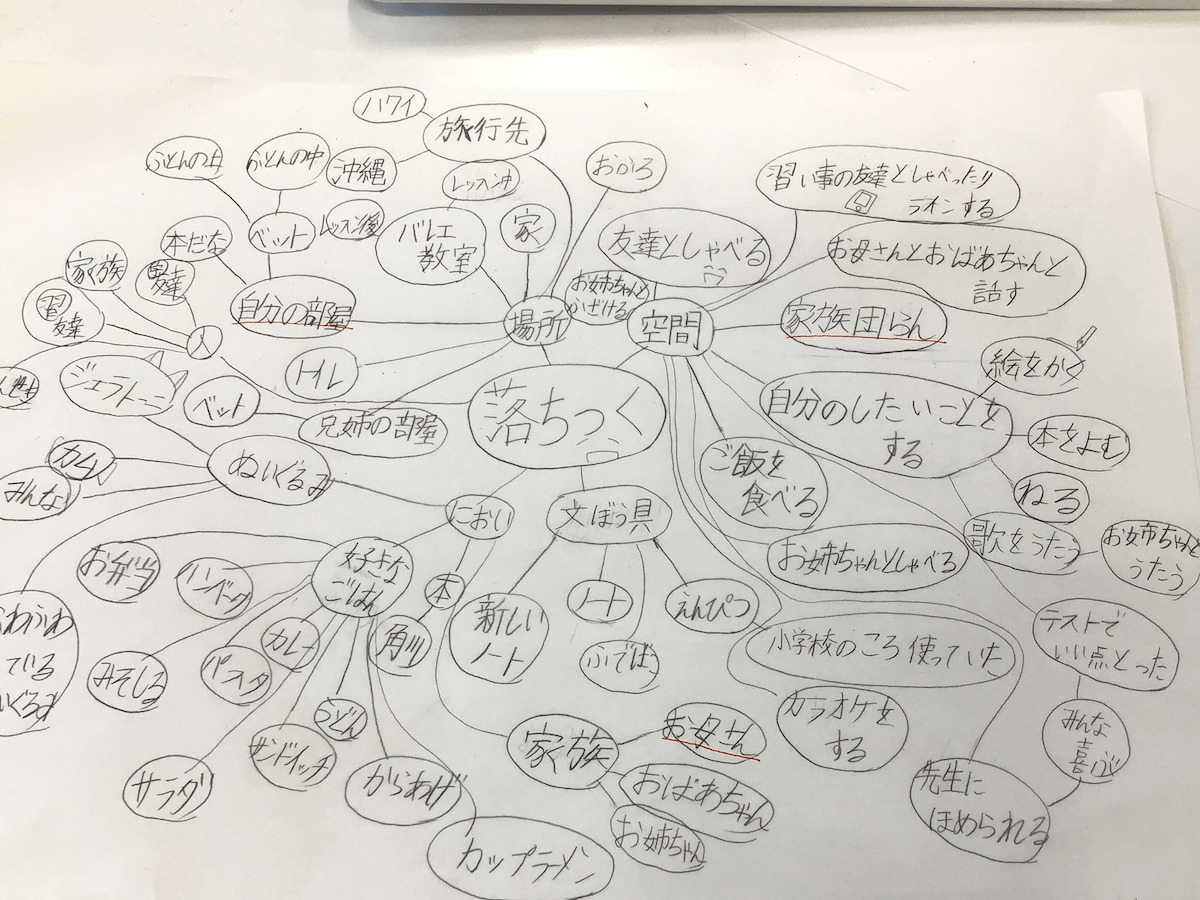 ハワイ
旅行先
沖縄
ふとんの上
ふとんの中
ベット
本だな
自分の部屋
レッスン中
レッスン後
バレエ
教室
家
おふろ
場所
トイレ
兄姉の部屋
家族
人
ジェラトーニ
ベット
ぬいぐるみ
みんな
落ちつく
空間
お姉ちゃんと
友達としゃべる
習い事の友達としゃべったり
ラインする
お母さんとおばあちゃんと
話す
家族団らん
自分のしたいことを
する
絵をかく
本をよむ
ねる
歌をうたう
お姉ちゃんと
うたう
ご飯を
食べる
お姉ちゃんとしゃべる
テストで
いい点とった
みんな
喜ぶ
先生に
ほめられる
カラオケを
する
文ぼう具
新しい
ノート
ノート
ふでばこ
えんぴつ
小学校のころ使っていた
におい
本
角川
好きな
ごはん
お弁当
みそしる
パスタ
カレー
サラダ
サンドイッチ
うどん
からあげ
カップラーメン
家族
お母さん
おばあちゃん
お姉ちゃん